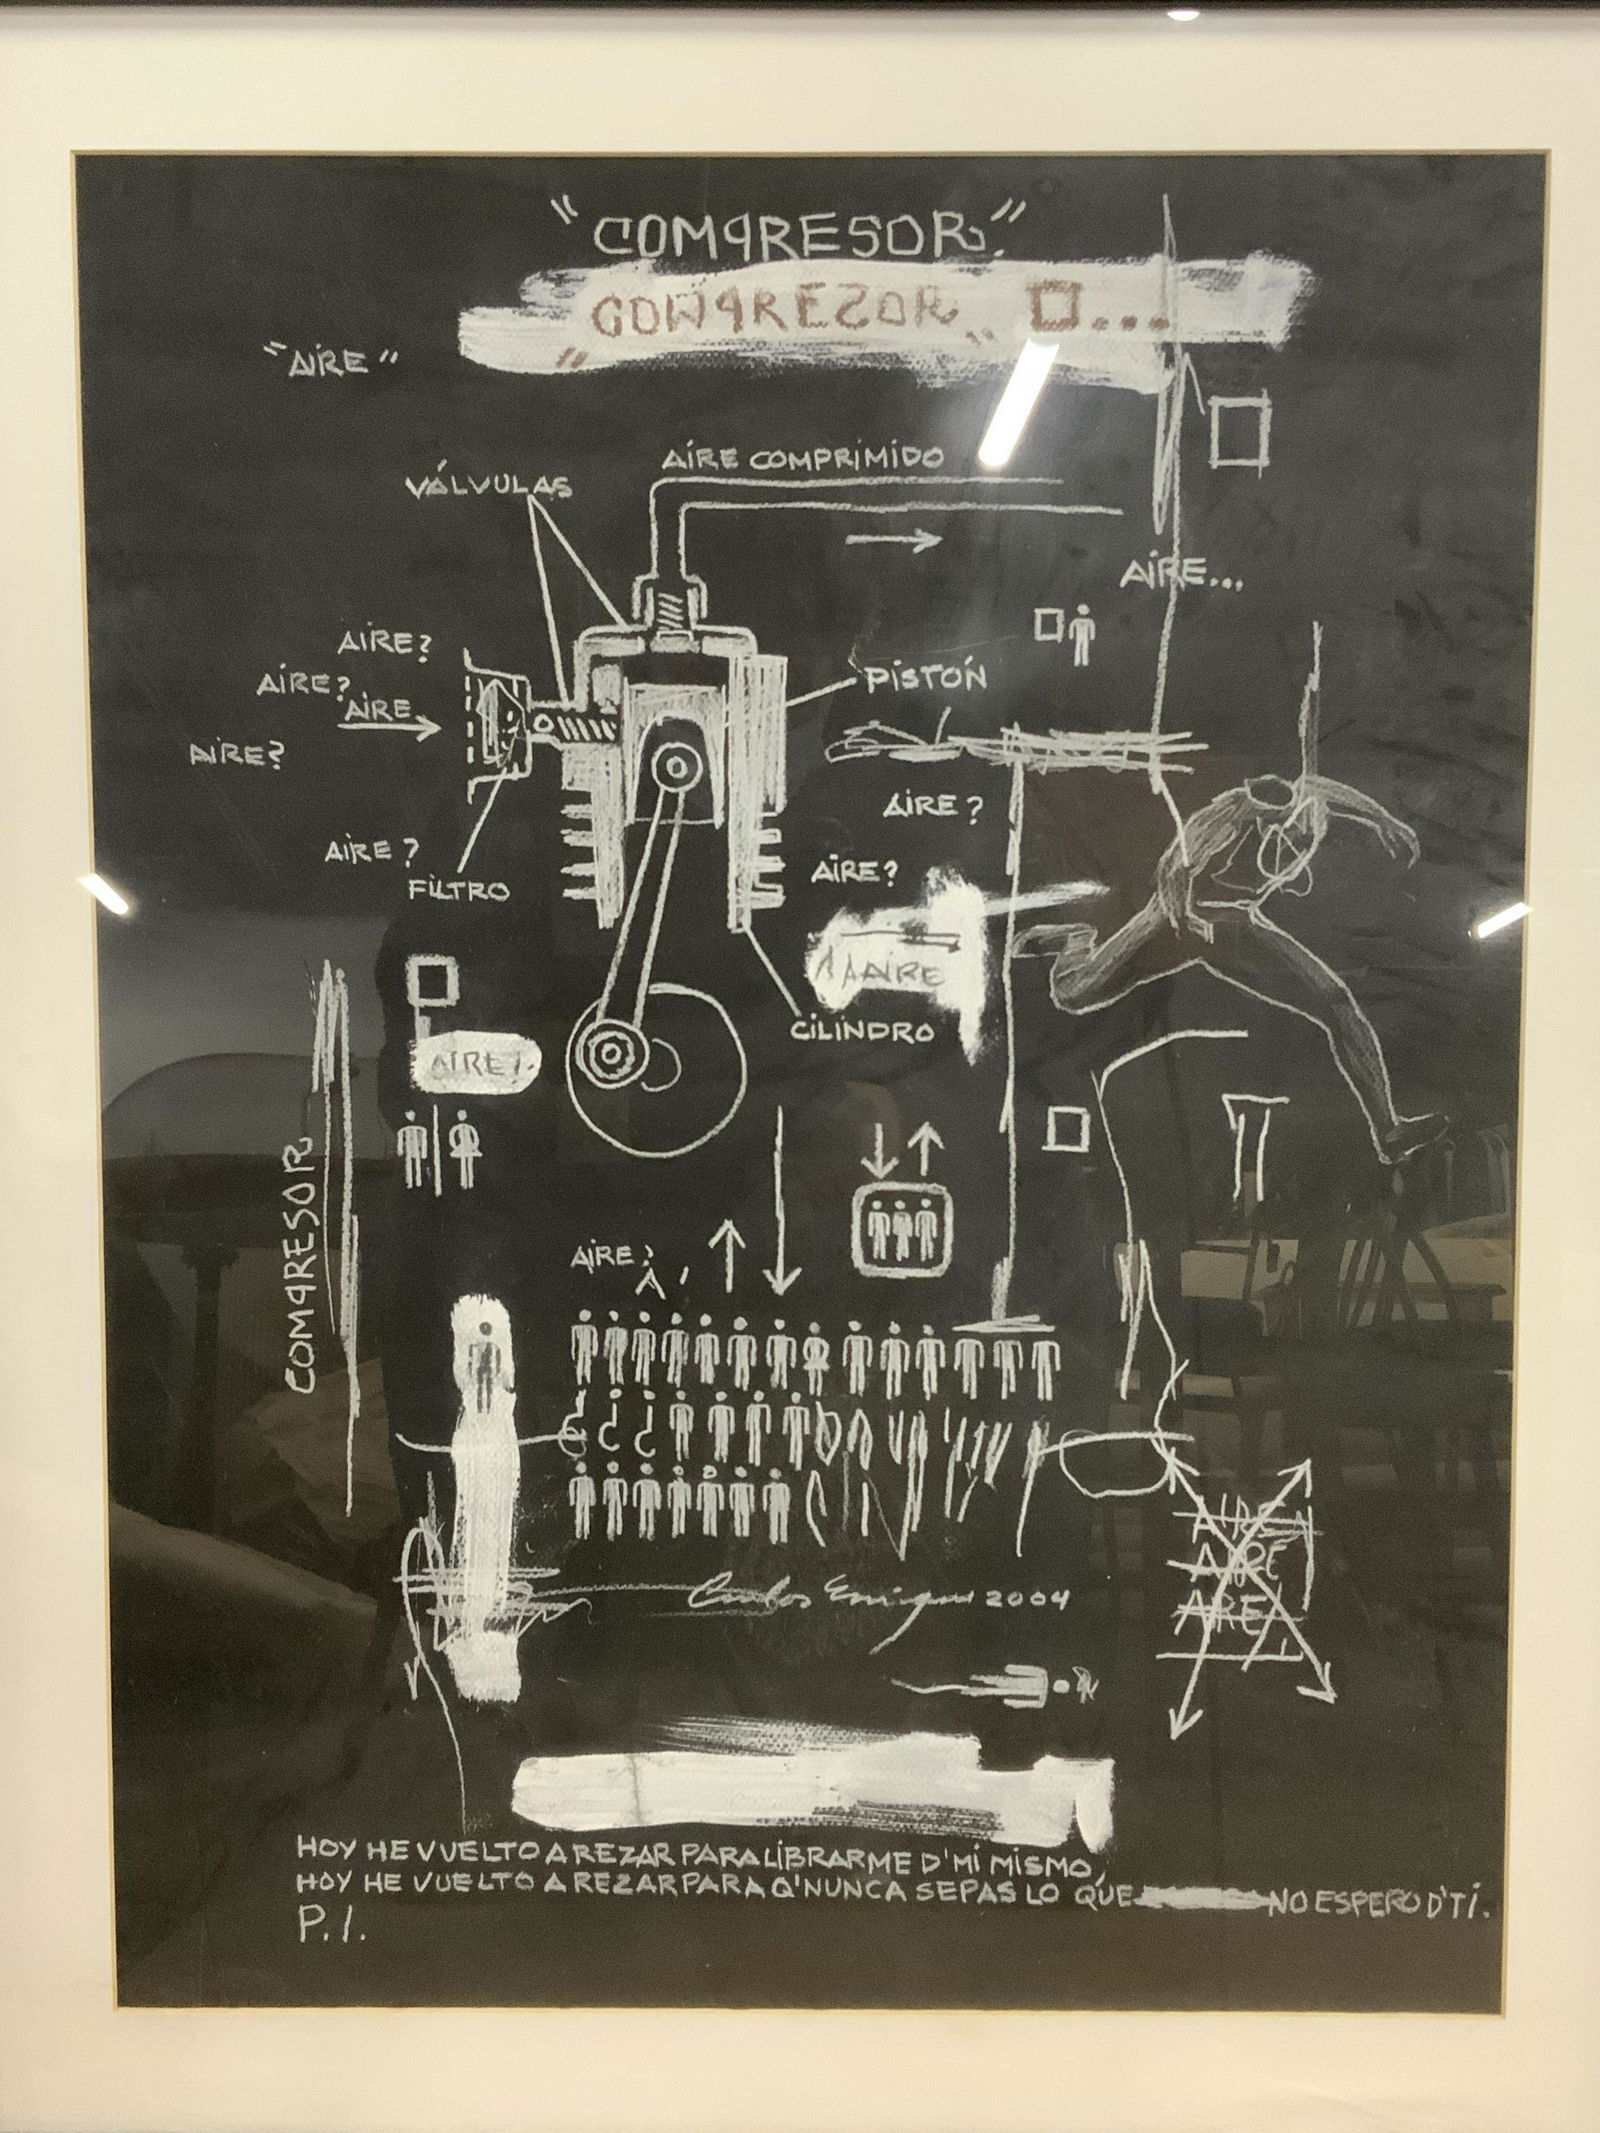 "COMPRESOR"
"COMPRESOR" ...
"AIRE"
AIRE COMPRIMIDO
VÁLVULAS
AIRE...
AIRE?
AIRE?
AIRE
AIRE?
PISTÓN
AIRE?
AIRE?
AIRE?
FILTRO
AIRE
CILINDRO
AIRE?
COMPRESOR
AIRE?
A
AIRE
AIRE
AIRE
Carlos Enrique 2004
HOY HE VUELTO A REZAR PARA LIBRARME D'MI MISMO,
HOY HE VUELTO A REZAR PARA Q'NUNCA SEPAS LO QUE NO ESPERO D'TÍ.
P.I.